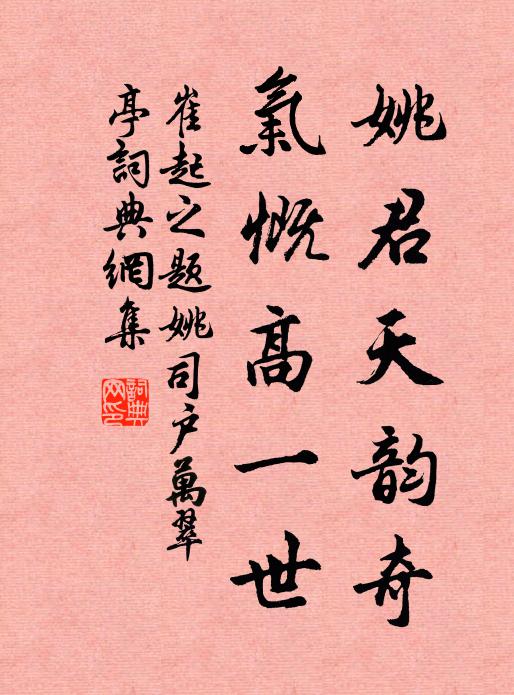 姚君天韵奇
氣慨高一世
崔起之题姚司户萬翠
亭詞典網集
詞典
网印